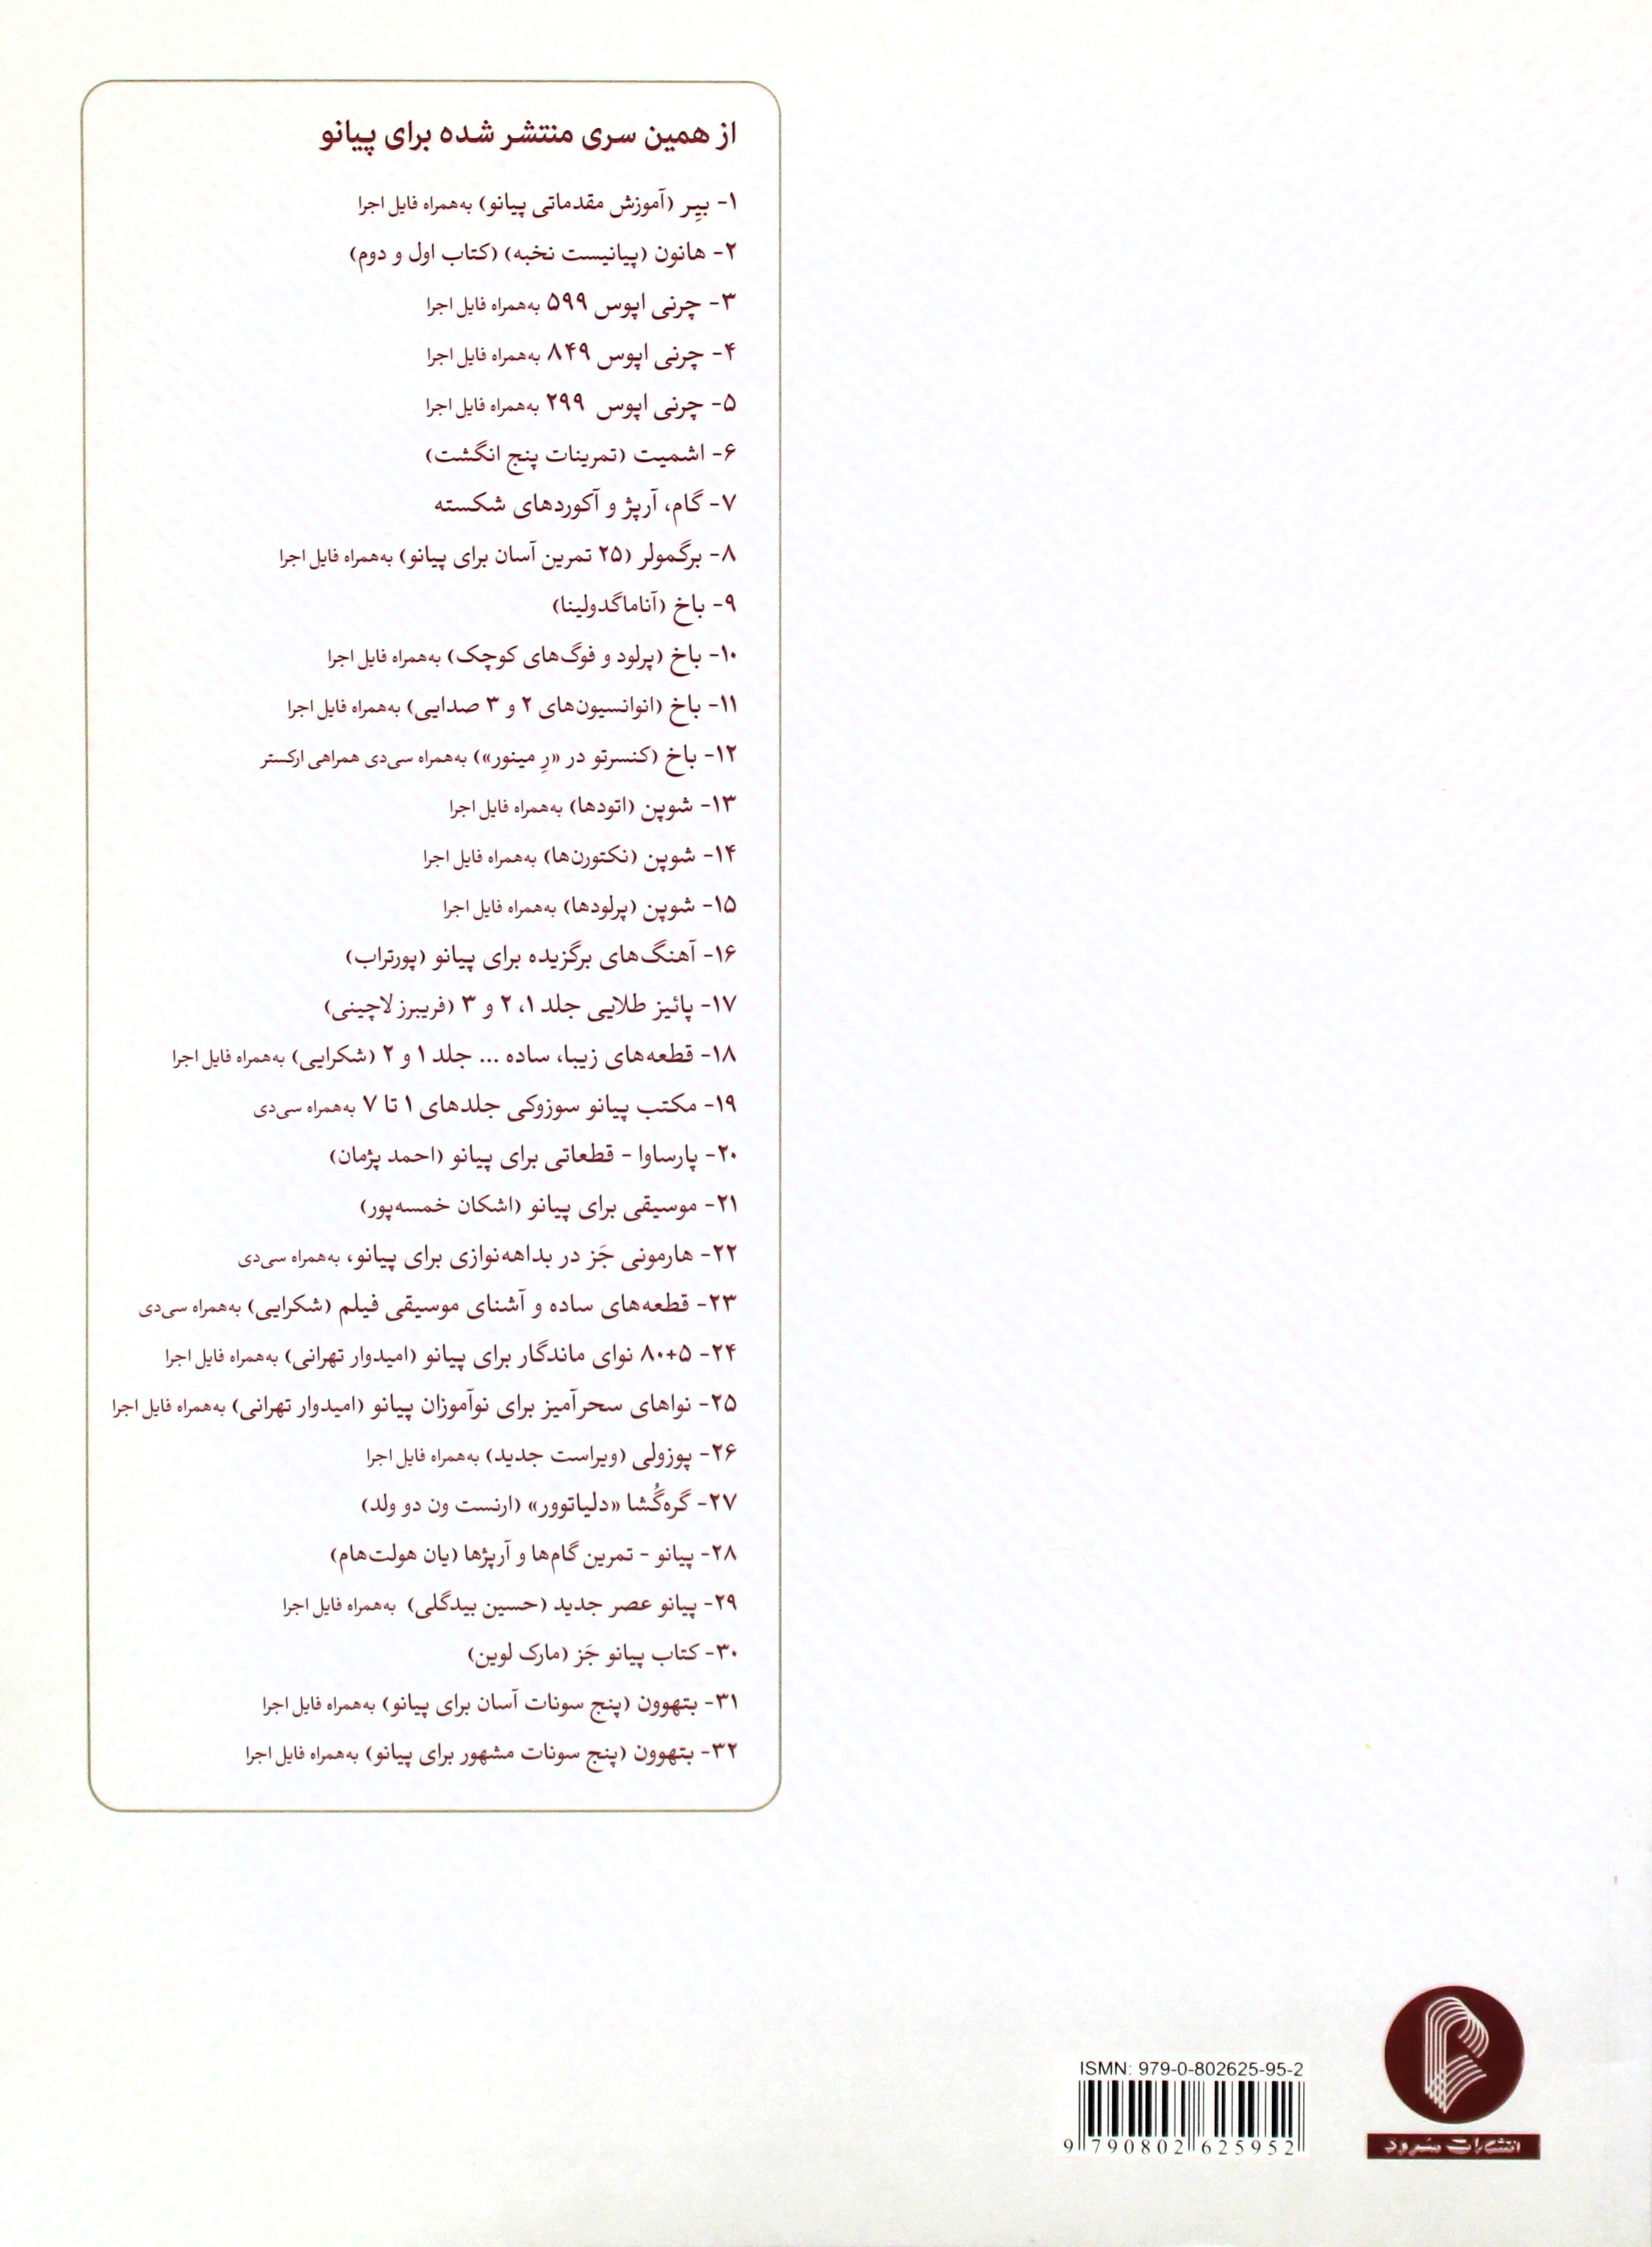 از همین سری منتشر شده برای پیانو
۱- بیِر (آموزش مقدماتی پیانو) به‌همراه فایل اجرا
۲- هانون (پیانیست نخبه) (کتاب اول و دوم)
۳- چرنی اپوس ۵۹۹ به‌همراه فایل اجرا
۴- چرنی اپوس ۸۴۹ به‌همراه فایل اجرا
۵- چرنی اپوس ۲۹۹ به‌همراه فایل اجرا
۶- اشمیت (تمرینات پنج انگشت)
۷- گام، آرپژ و آکوردهای شکسته
۸- برگمولر (۲۵ تمرین آسان برای پیانو) به‌همراه فایل اجرا
۹- باخ (آناماگدولینا)
۱۰- باخ (پرلود و فوگ‌های کوچک) به‌همراه فایل اجرا
۱۱- باخ (انوانسیون‌های ۲ و ۳ صدایی) به‌همراه فایل اجرا
۱۲- باخ (کنسرتو در «رِ مینور») به‌همراه سی‌دی همراهی ارکستر
۱۳- شوپن (اتودها) به‌همراه فایل اجرا
۱۴- شوپن (نکتورن‌ها) به‌همراه فایل اجرا
۱۵- شوپن (پرلودها) به‌همراه فایل اجرا
۱۶- آهنگ‌های برگزیده برای پیانو (پورتراب)
۱۷- پائیز طلایی جلد ۱، ۲ و ۳ (فریبرز لاچینی)
۱۸- قطعه‌های زیبا، ساده ... جلد ۱ و ۲ (شکرایی) به‌همراه فایل اجرا
۱۹- مکتب پیانو سوزوکی جلدهای ۱ تا ۷ به‌همراه سی‌دی
۲۰- پارساوا - قطعاتی برای پیانو (احمد پژمان)
۲۱- موسیقی برای پیانو (اشکان خمسه‌پور)
۲۲- هارمونی جَز در بداهه‌نوازی برای پیانو، به‌همراه سی‌دی
۲۳- قطعه‌های ساده و آشنای موسیقی فیلم (شکرایی) به‌همراه سی‌دی
۲۴- ۵+۸۰ نوای ماندگار برای پیانو (امیدوار تهرانی) به‌همراه فایل اجرا
۲۵- نواهای سحرآمیز برای نوآموزان پیانو (امیدوار تهرانی) به‌همراه فایل اجرا
۲۶- پوزولی (ویراست جدید) به‌همراه فایل اجرا
۲۷- گره‌گُشا «دلیاتوور» (ارنست ون دو ولد)
۲۸- پیانو - تمرین گام‌ها و آرپژها (یان هولت‌هام)
۲۹- پیانو عصر جدید (حسین بیدگلی) به‌همراه فایل اجرا
۳۰- کتاب پیانو جَز (مارک لوین)
۳۱- بتهوون (پنج سونات آسان برای پیانو) به‌همراه فایل اجرا
۳۲- بتهوون (پنج سونات مشهور برای پیانو) به‌همراه فایل اجرا
ISMN: 979-0-802625-95-2
9 790802 625952
انتشارات سرود